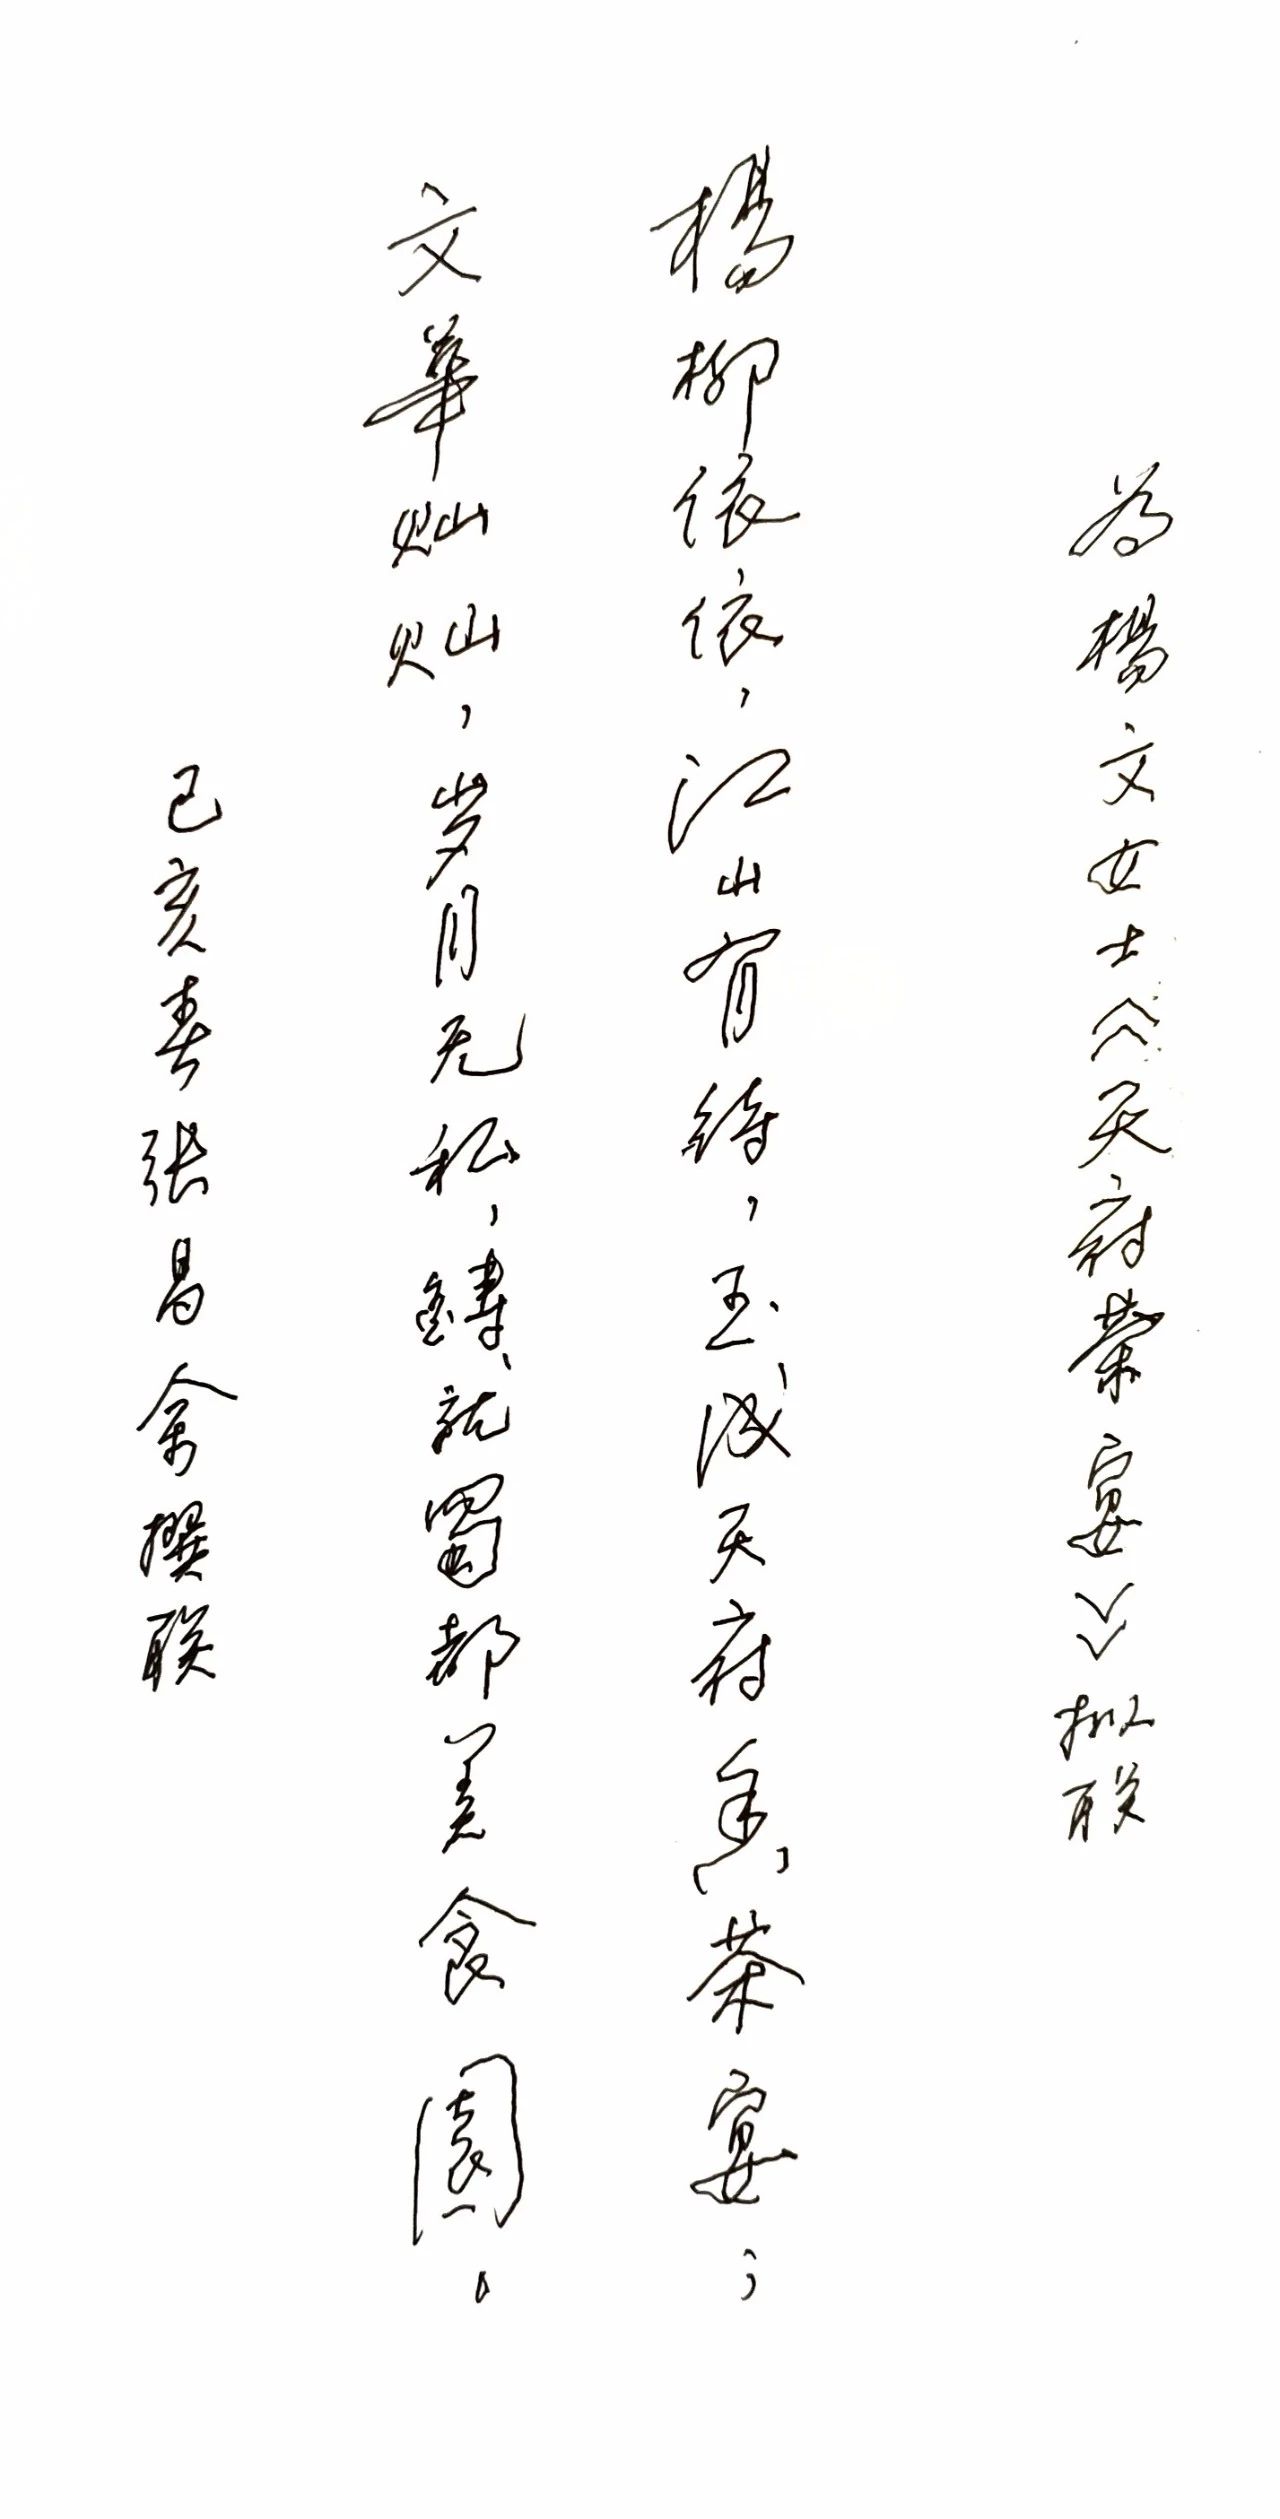 為楊文女士《天府茶宴》拟联
楊柳依依，江山有待，玉成天府茶宴；
文華灿灿，岁月无私，鑄就蜀都美食園。
己亥春張昌余撰联